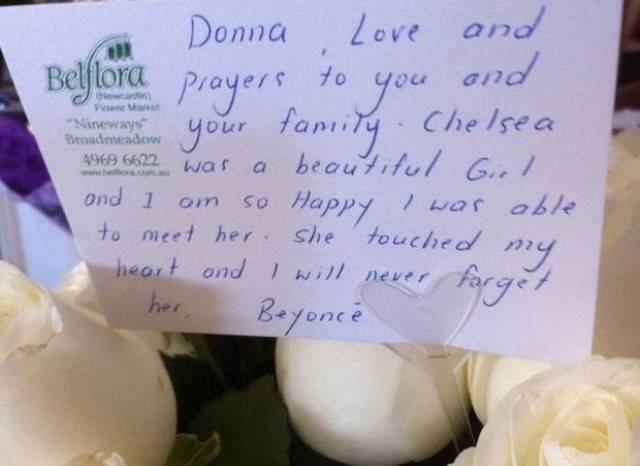 Belflora
(Newcastle)
Flower Market
"Nineways"
Broadmeadow
4969 6622
www.belflora.com.au
Donna, Love and
prayers to you and
your family. Chelsea
was a beautiful Girl
and I am so Happy I was able
to meet her. She touched my
heart and I will never forget
her. Beyoncé